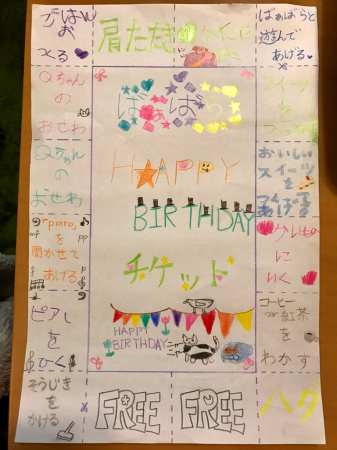 ごはん
お
つくる
肩たたき
ばぁばらと
遊んで
あげる
Qちゃん
の
おせわ
Qちゃん
の
おせわ
piano
を
聞かせて
あげる
mf
pp
ピアし
を
ひく
そうじき
を
かける
ばぁば
HAPPY
BIRTHDAY
チケッド
HAPPY
BIRTHDAY
スイーツ
を
おいしい
スイーツ
を
あげる
かいもの
に
いく
コーヒー
or 紅茶
を
わかす
FREE
FREE
ハグ